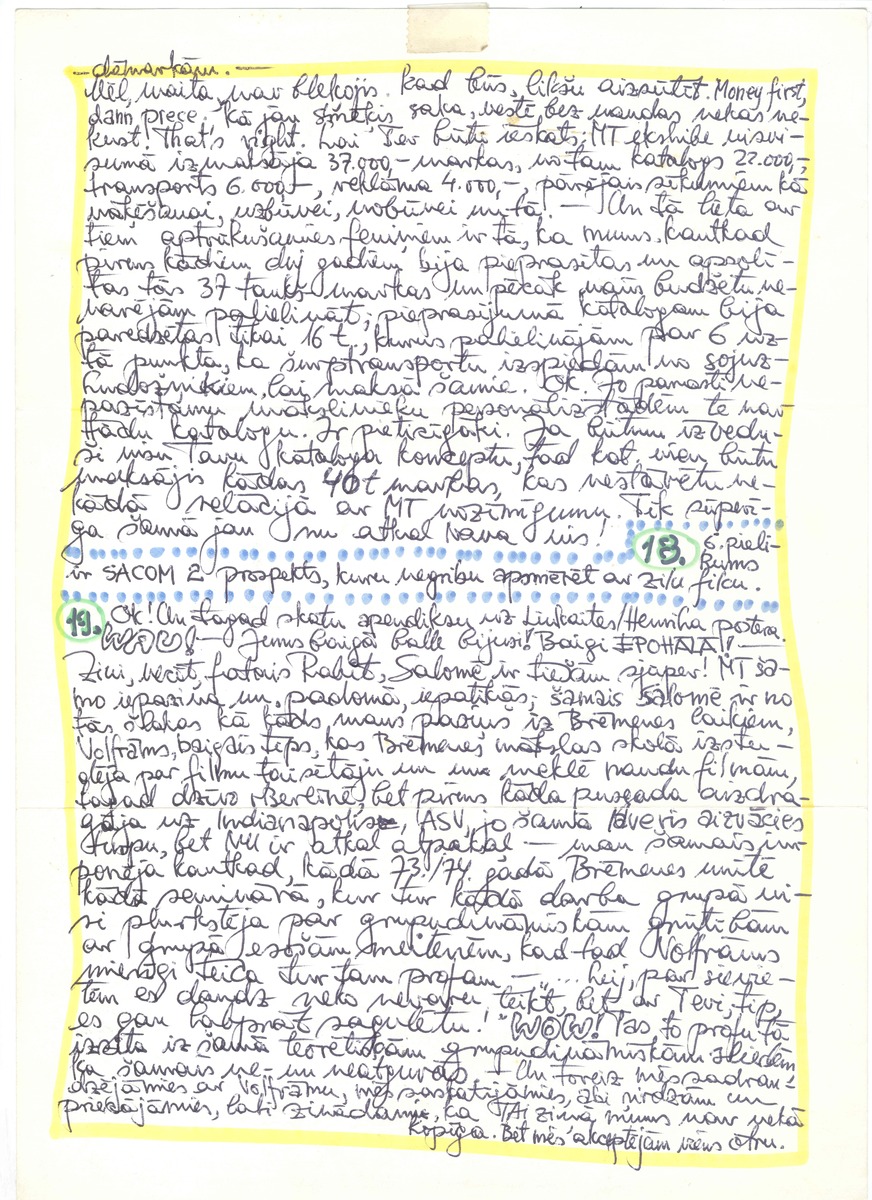 dāmarkām. —
Vēl, maita, nav blekojis. Kad būs, likšu aizsūtīt. Money first,
dann prece. Kā jau saka, neste bez naudas nekas ne-
kust! That's right. Lai Tev būtu ieskats, MT ekshibe visvi-
sumā izmaksāja 37.000,- markas, no tam katalogs 22.000,-,
transports 6.000,-, reklāma 4.000,-, pārējais sīkumiem kā
uzbūvei, nobūvei un tā. — Un tā lieta ar
tiem aptrūkušamies feniņiem ir tā, ka mums kautkad
pirms kādiem divi gadiem bija pieprasītas un apsolī-
tas tās 37 taukst markas un pēcāk mūs budžetu ne-
varējām palielināt; pieprasījumā katalogam bija
paredzētas tikai 16 t, kurus palielinājām par 6 uz
tā punkta, ka šurptransportu izspiedām no sojuz-
hudožņikiem, lai maksā šamie. Ok. Jo pamasti ne-
pazīstamu mākslinieku personālizstādēm te nav
tādu katalogu. Ir pieticīgāki. Ja būtum izvedu-
ši visu Tavu kataloga konceptu, tad kat. vien būtu
maksājis kādas 40 t markas, kas nestāvētu ne-
kādā relācijā ar MT nozīmīgumu. Tik sūperi-
ga šamā jau nu atkal nava vis!
18. 6. pieli-
kums
ir SACOM 2 prospekts, kuru negribu apsmērēt ar zilu filcu.
19. Ok! Un tagad skatu apendiksu uz Liukaites/Henriha potera.
WOW! — Jums baigā balle bijusi! Baigi EPOHALA!! —
Zini, vecīt, fotais Rabit, Salomē ir tiešām sjāper! MT ša-
mo iepazina un, padomā, iepatikās; šamais Salomē ir no
tās šļakas kā kāds mans paziņs iz Brēmenes laikiem,
Volfrāms, baigais tips, kas Brēmenes mākslas skolā izstu-
dēja par filmu taisītāju un nu meklē naudu filmām,
tagad dzīvo Berlīnē, bet pirms kāda pusgada aizdrā-
zāja uz Indianapolis, ASV, jo šamā lāveris aizvācies
turpu, bet NU ir atkal atpakaļ — man šamais im-
ponēja kautkad, kādā 73./74. gadā Brēmenes unitē
kādā seminārā, kur tur kādā darba grupā vi-
si plurkstēja par grupudinamiskām grūtībām
ar grupā esošām meitenēm, kad tad Volfrāms
mierīgi teica tur tam profam — "... hej, par sievie-
tēm es daudz neko nevaru teikt, bet ar Tevi, tip,
es gan labprāt sagulētu!" WOW! Tas to profu tā
izsita iz šamā teorētiskām grupudinamiskām sliedēm
ka šamais ne- un neatguvās. — Un toreiz mēs sadrau-
dzējāmies ar Volfrāmu, mēs saskatījāmies, abi nirdzām un
piecējāmies, labi zinādami, ka TAI ziņā mums nav nekā
kopīga. Bet mēs akceptējām viens otru.